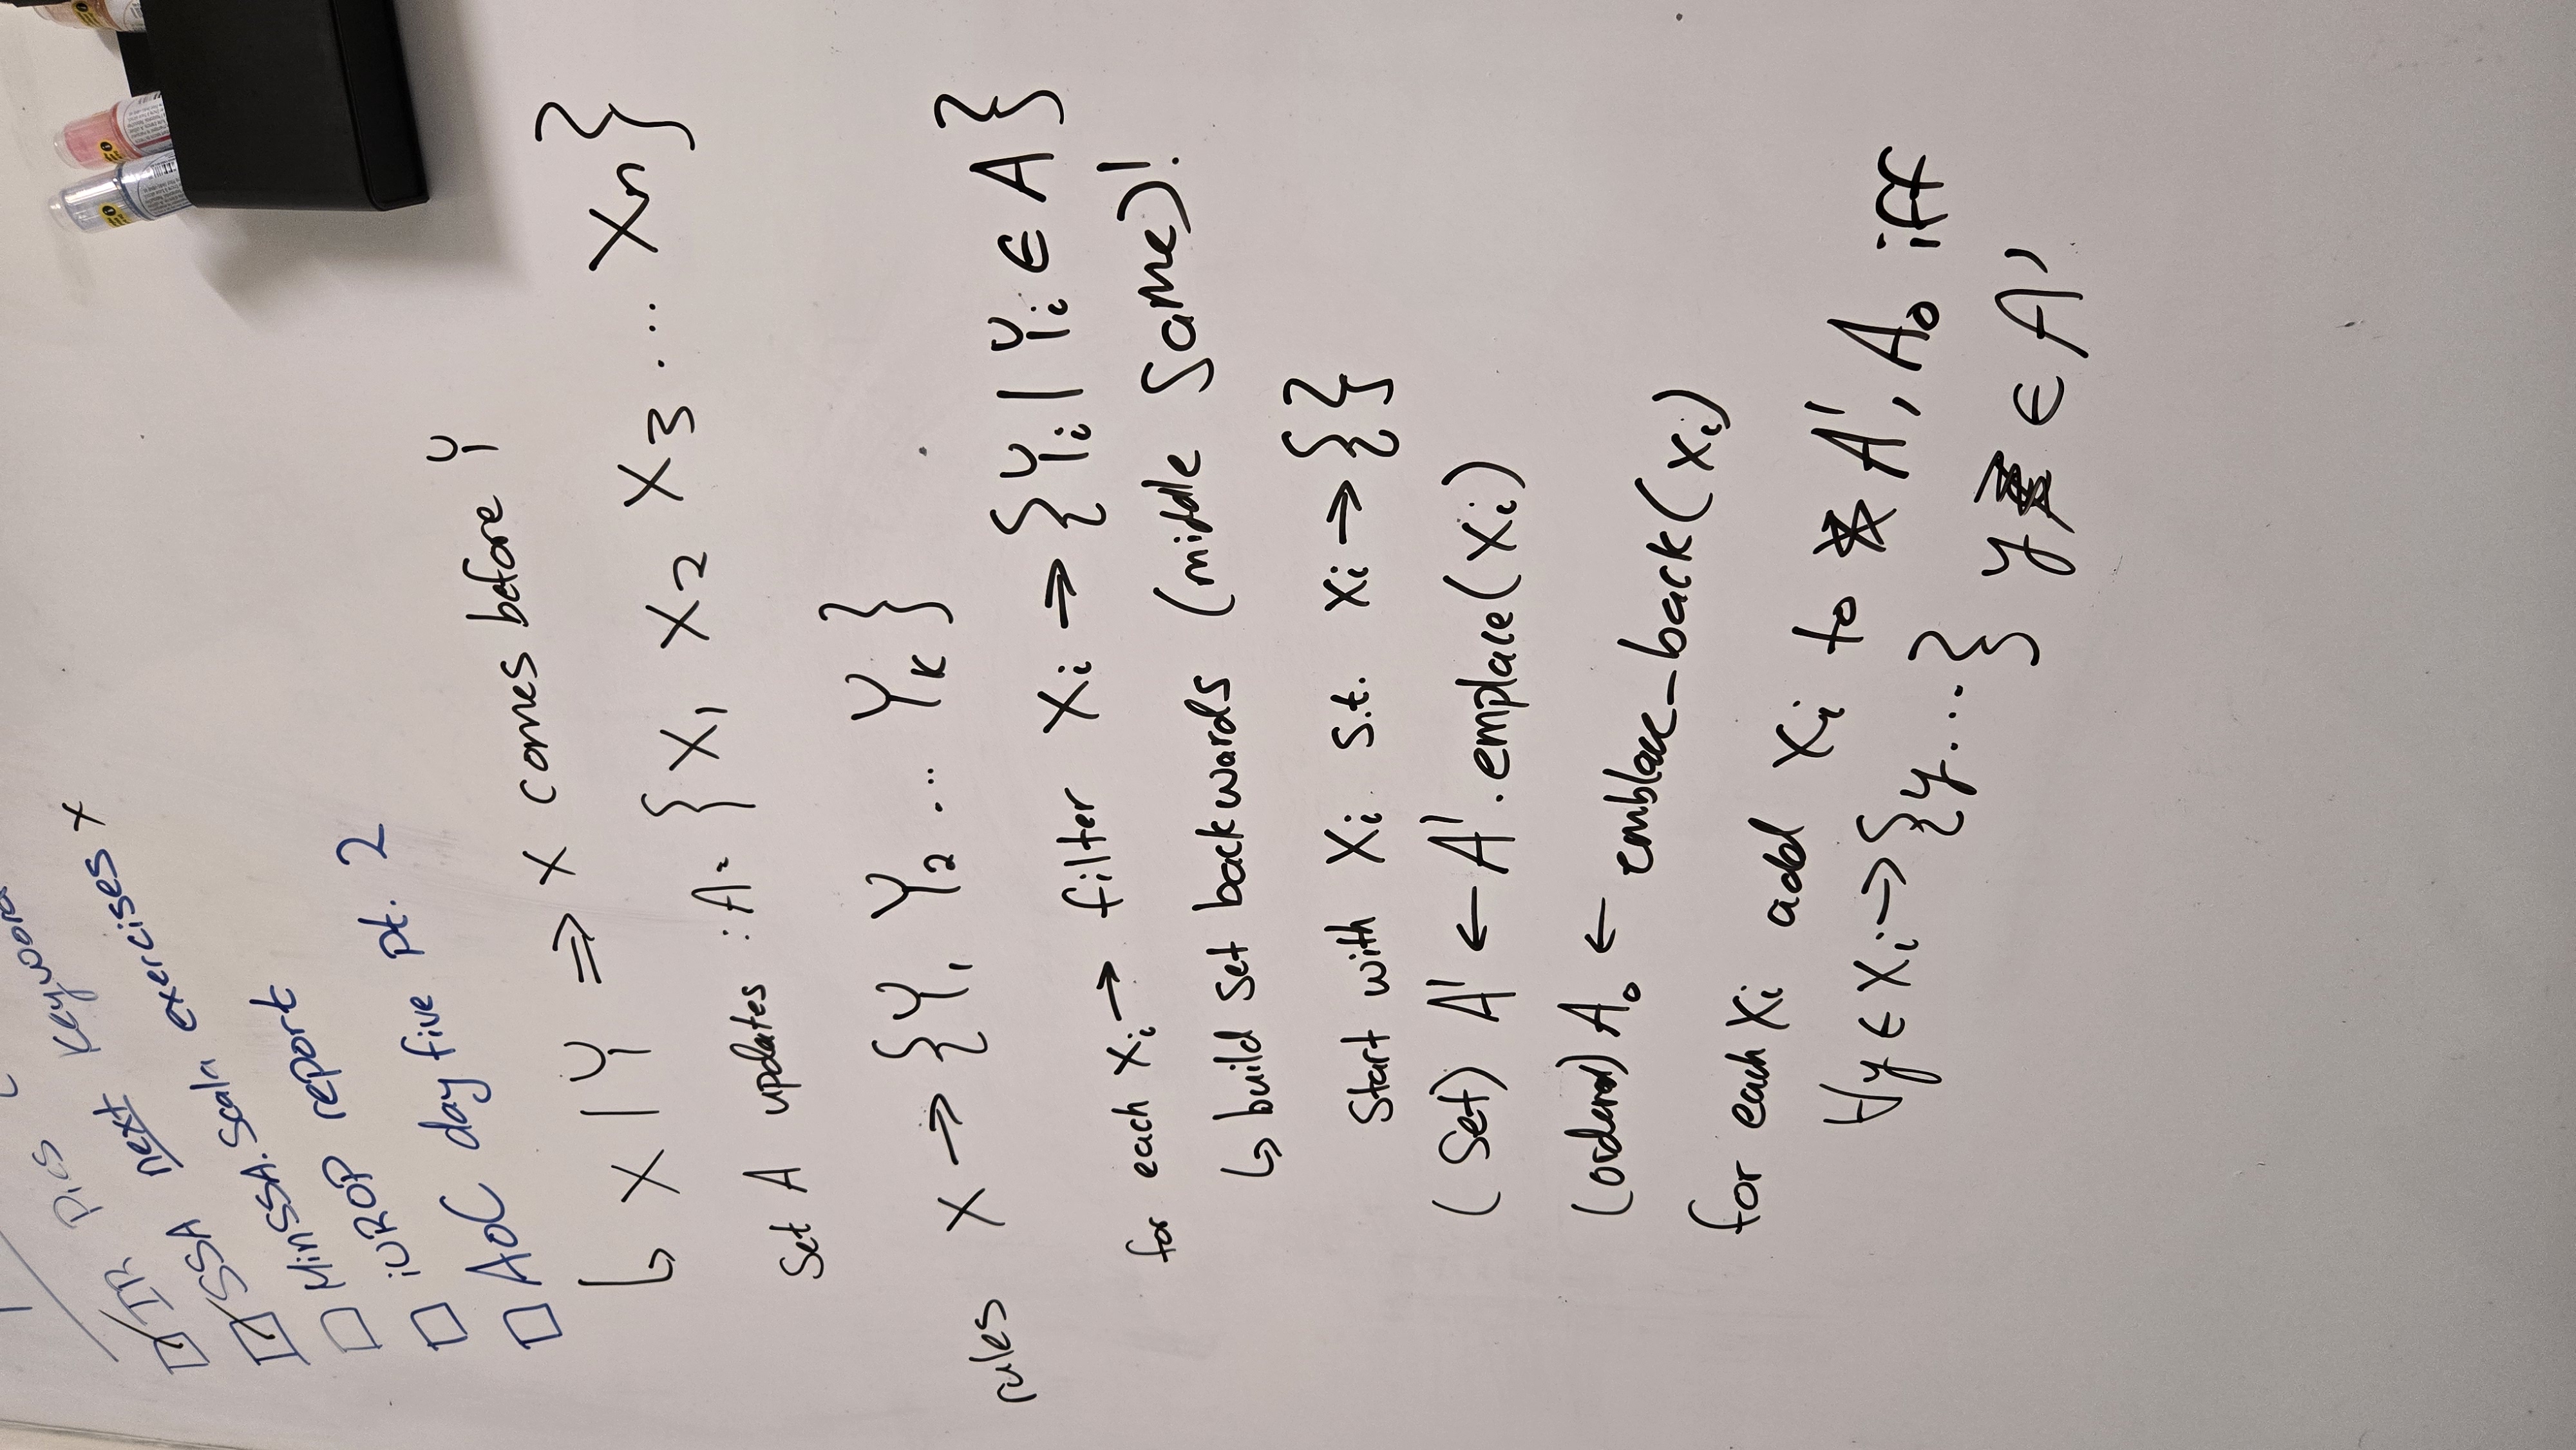 IR Pics
SSA next Keyword
MinSSA.Scala exercises x
iUROP report
AoC day five pt. 2
↳ X | Y ⇒ X comes before Y
Set A updates : A = { X₁ X₂ X₃ ... Xn }
rules X → { Y₁ Y₂ ... Yk }
for each Xi → filter Xi → { Yi | Yi ∈ A }
↳ build set backwards (middle same)!
Start with Xi s.t. Xi → { }
(Set) A' ← A'.emplace(Xi)
(ordered) A₀ ← emblace_back(Xi)
for each Xi add Xi to A', A₀ iff
∀y ∈ Xi → {y...} y ∈ A'